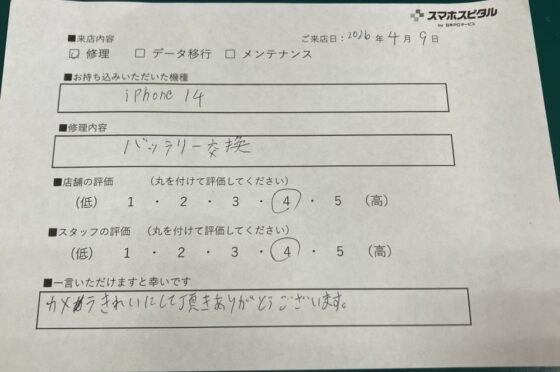 スマホスピタル
by 日本PCサービス
■来店内容
ご来店日：2026 年 4 月 9 日
☑ 修理 □ データ移行 □ メンテナンス
■お持ち込みいただいた機種
iPhone 14
■修理内容
バッテリー交換
■店舗の評価 （丸を付けて評価してください）
（低） 1 ・ 2 ・ 3 ・ 4 ・ 5 （高）
■スタッフの評価 （丸を付けて評価してください）
（低） 1 ・ 2 ・ 3 ・ 4 ・ 5 （高）
■一言いただけますと幸いです
カメラきれいにして頂きありがとうございます。